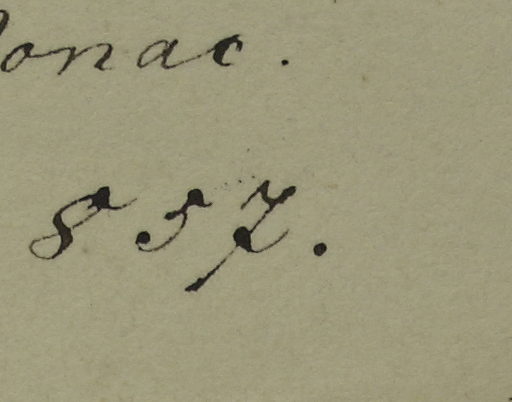 onac.
857.